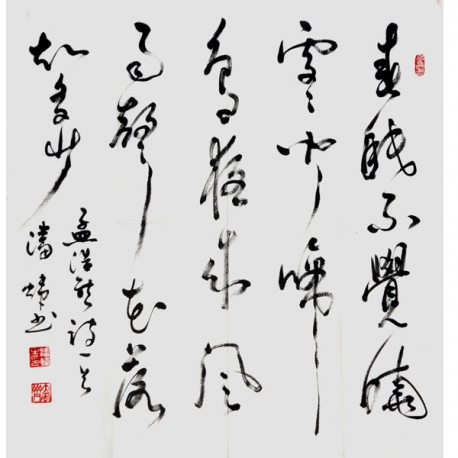 春眠不覺曉
處々聞啼
鳥夜來風
雨聲花落
知多少
孟浩然詩一首
潘煒书